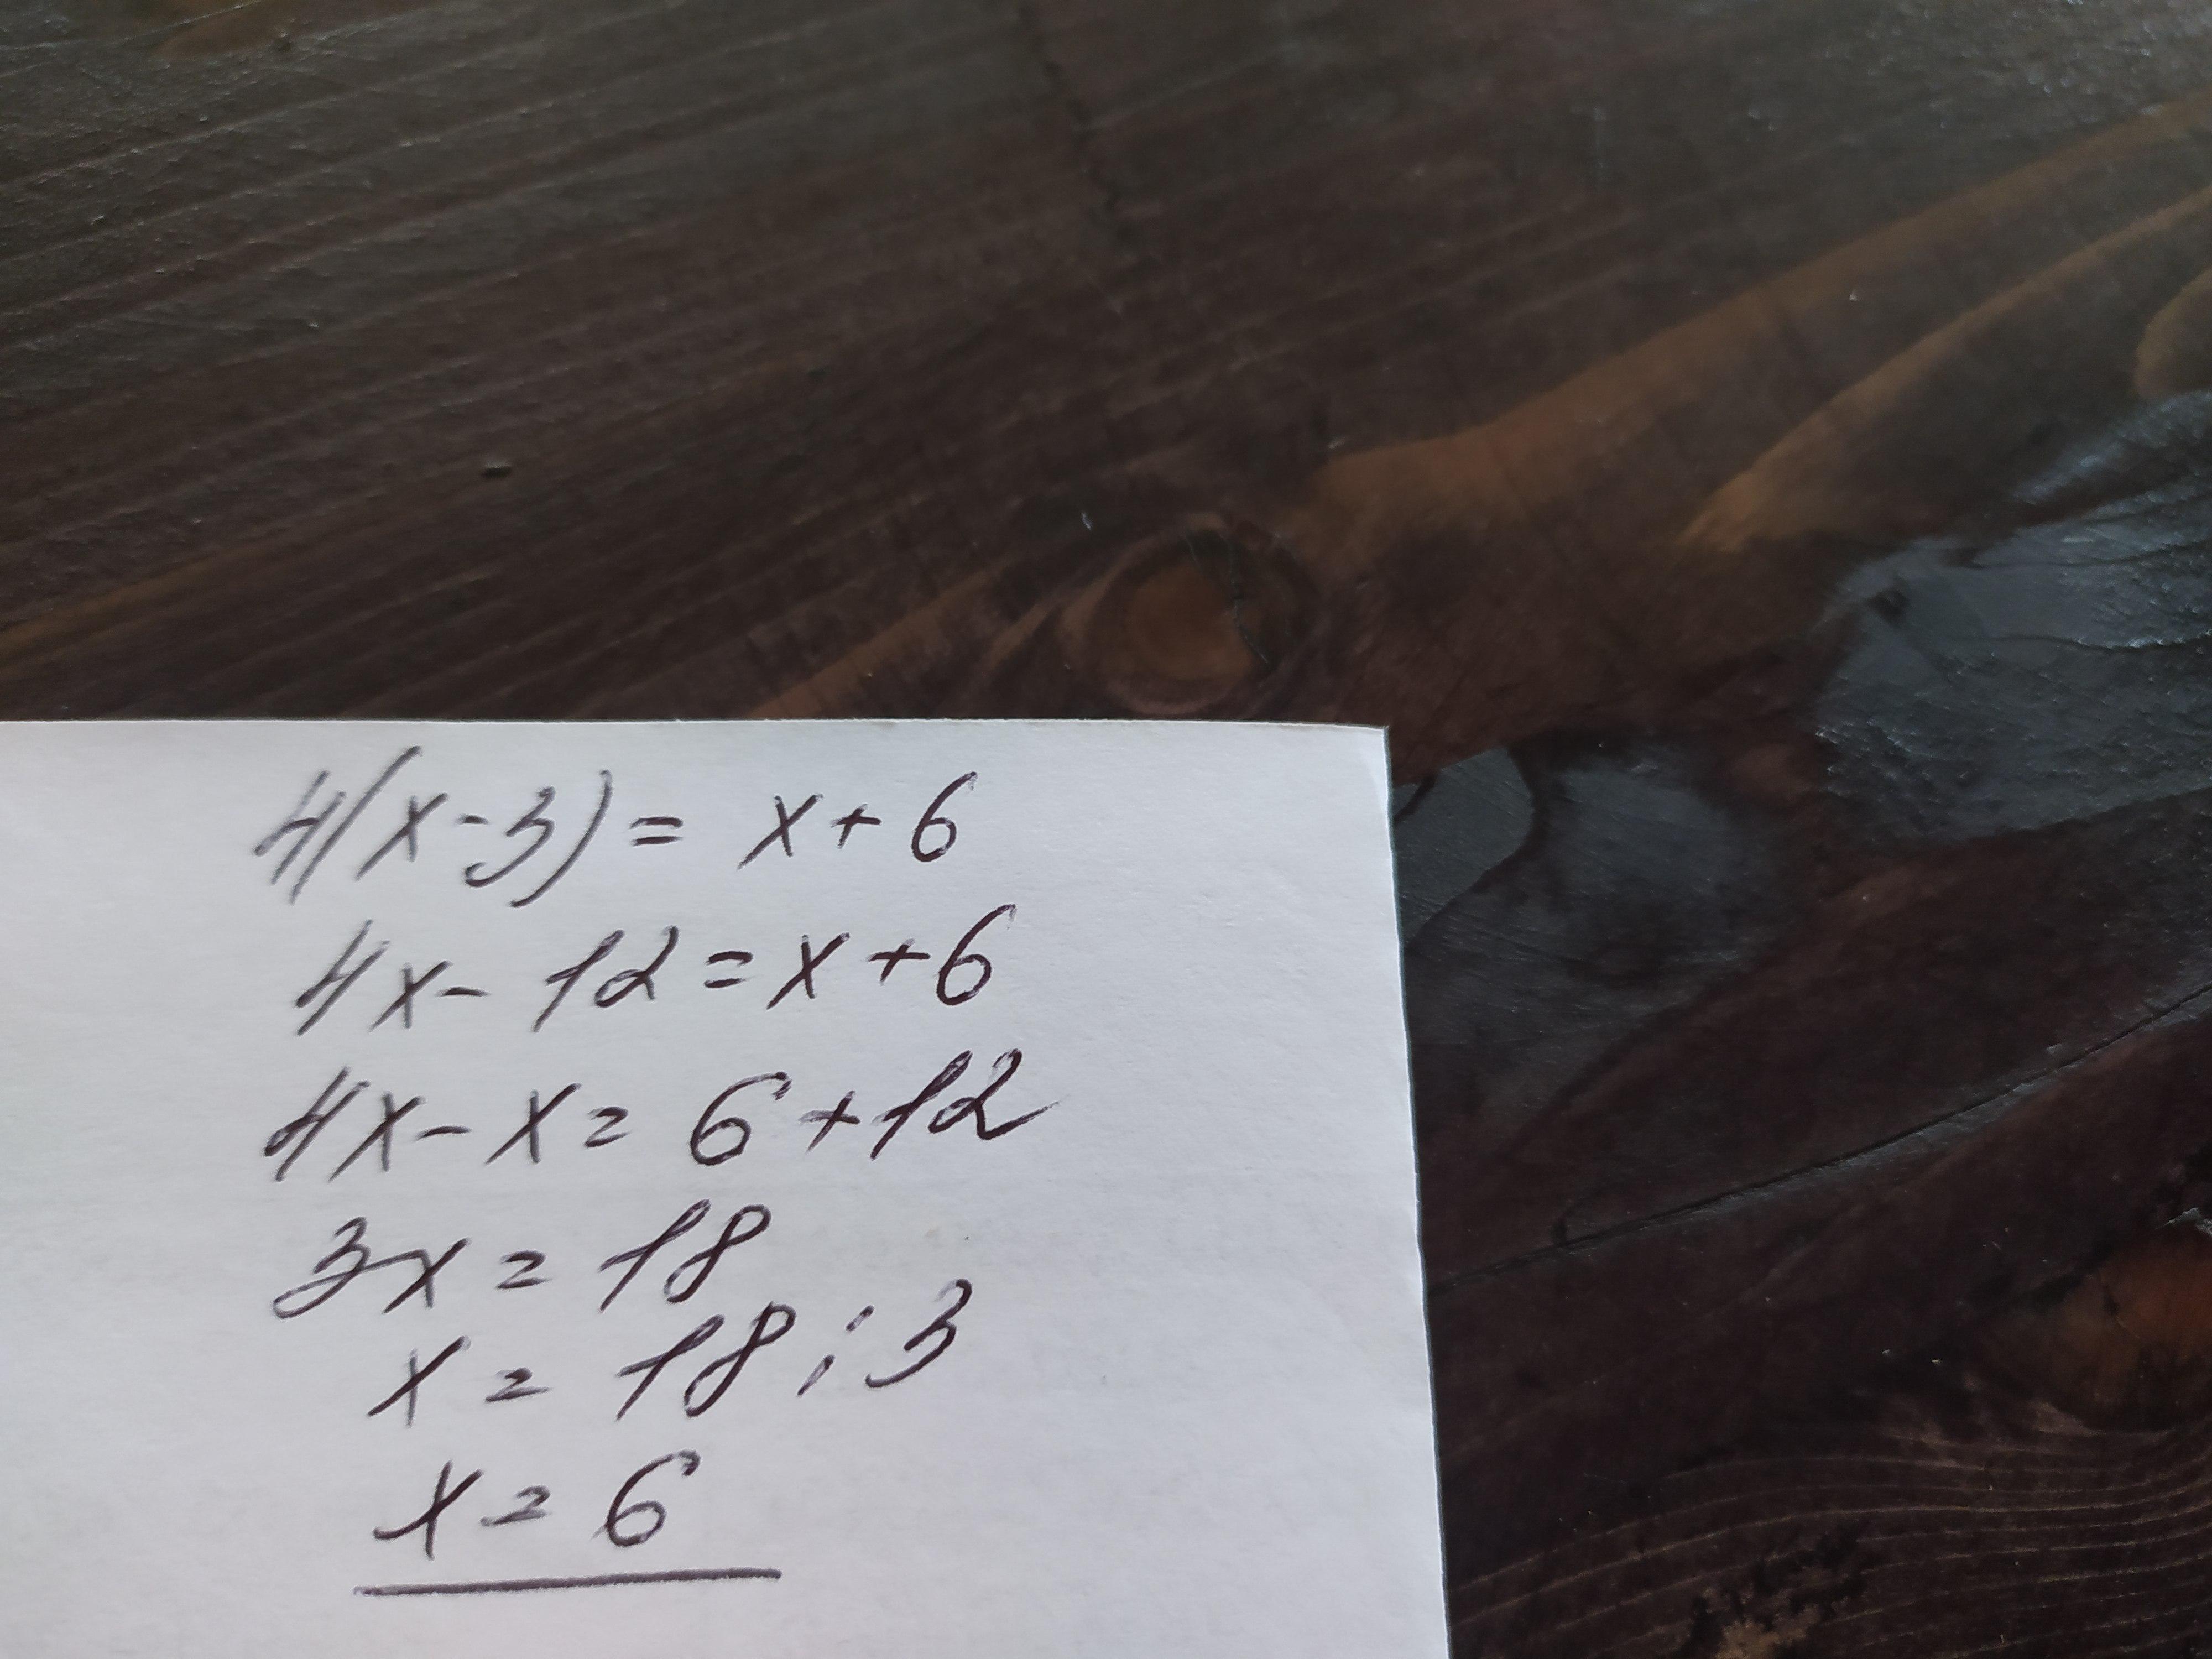 4(x-3)= x+6
4x- 12=x+6
4x- x= 6+12
3x = 18
x = 18 : 3
x = 6